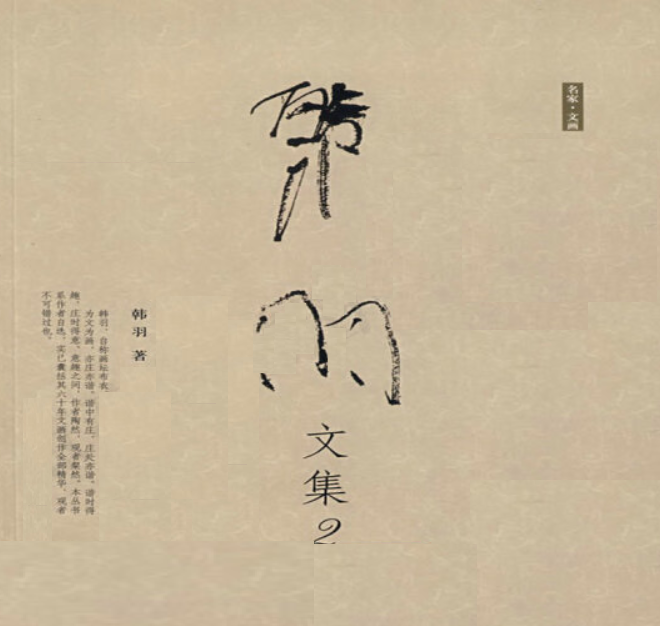 名家·文画
韩羽
文集2
韩羽 著
韩羽，自称画坛布衣。
为文为画，亦庄亦谐。谐中有庄，庄处亦谐。谐时得
趣，庄时得意。意趣之间，作者陶然，观者粲然。本丛书
系作者自选，实已囊括其六十年文画创作全部精华，观者
不可错过也。